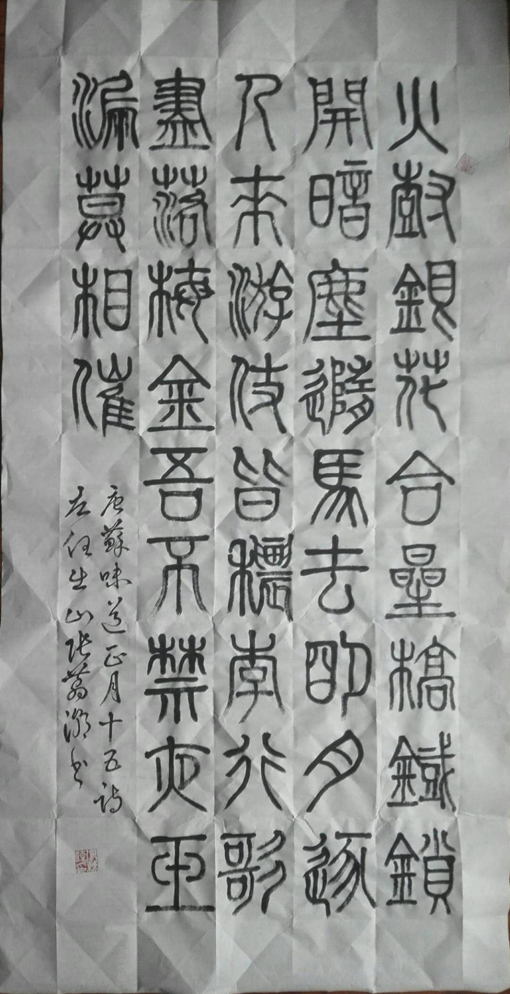 火樹銀花合星橋鐵鎖
開暗塵隨馬去明月逐
人來游伎皆穠李行歌
盡落梅金吾不禁夜玉
漏莫相催
唐蘇味道正月十五詩
任生山张书